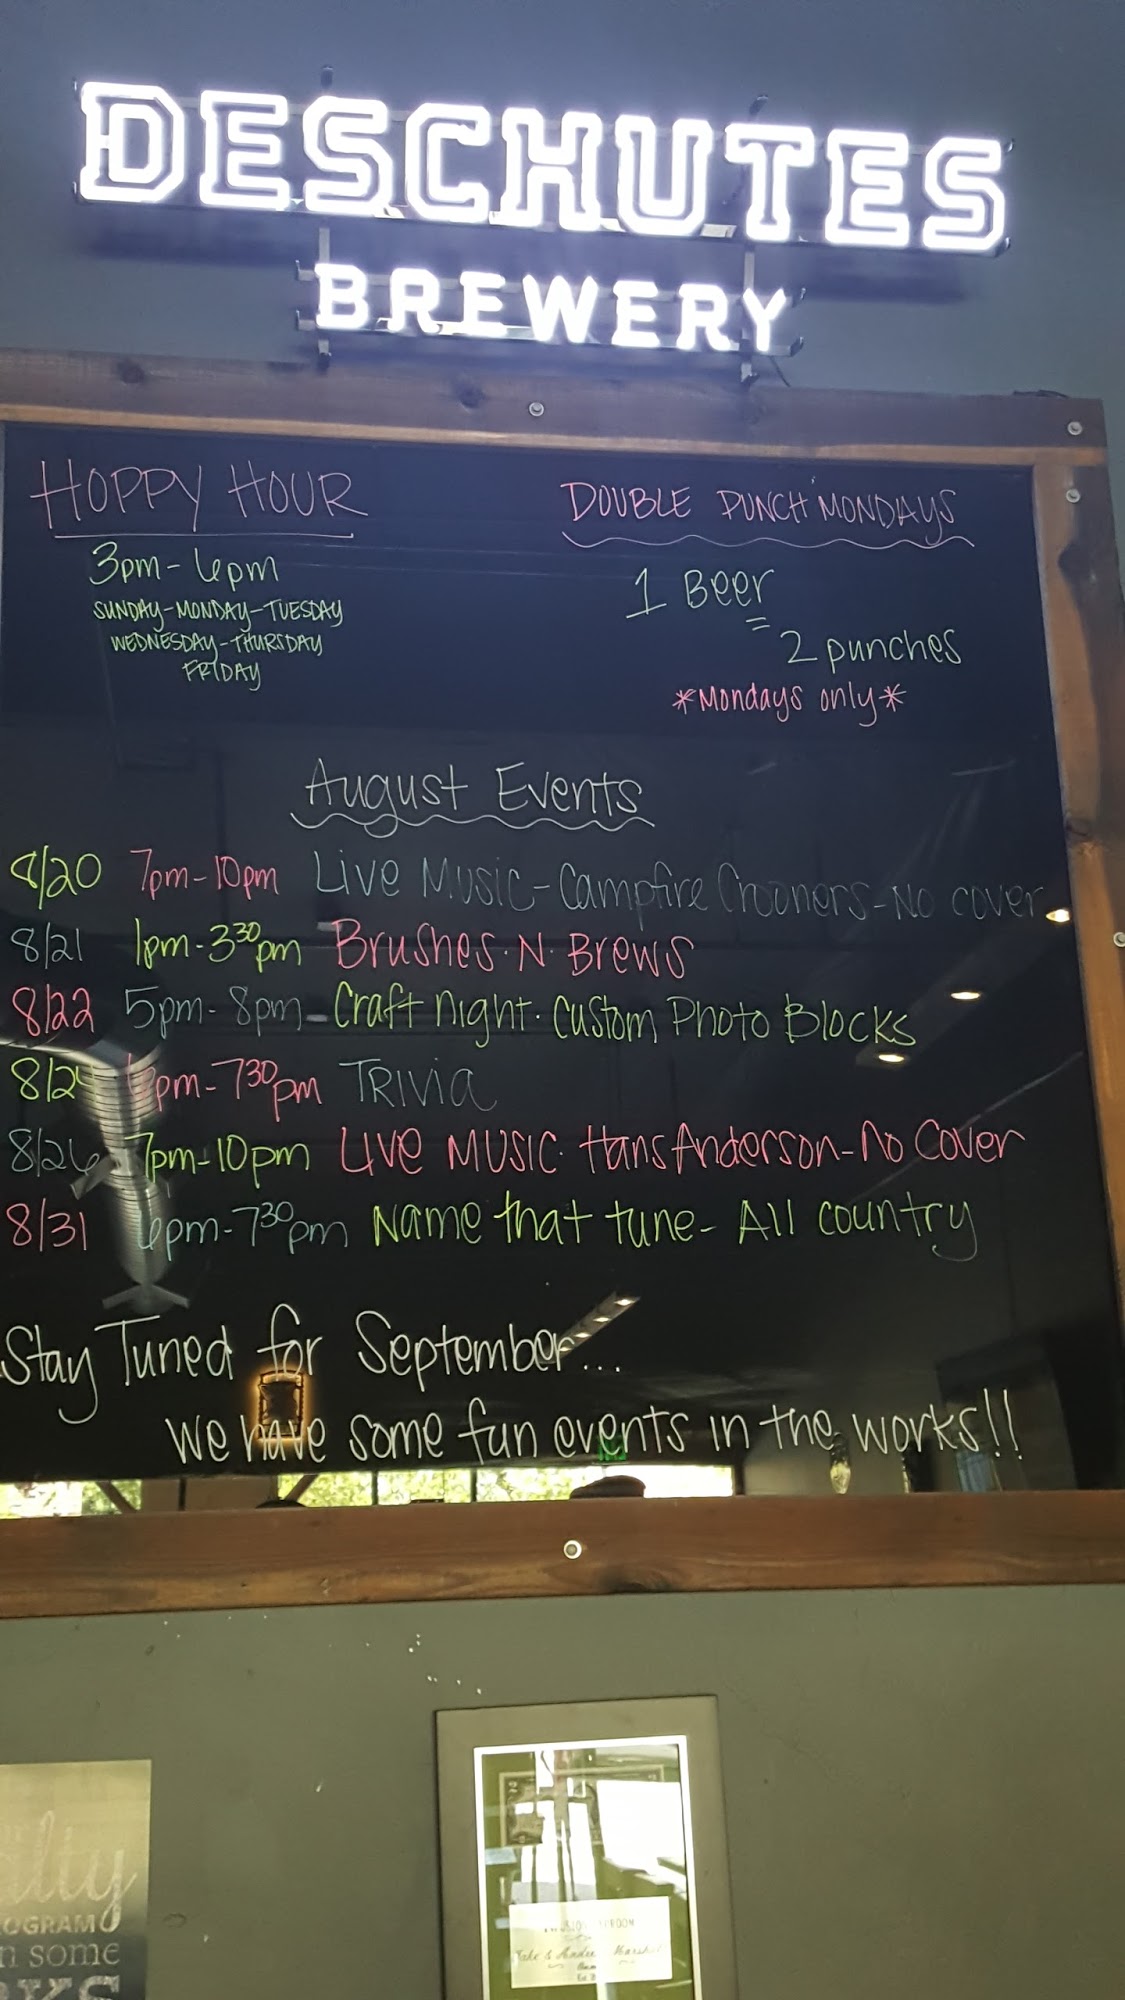 DESCHUTES
BREWERY
HOPPY HOUR
3pm-6pm
SUNDAY-MONDAY-TUESDAY
WEDNESDAY-THURSDAY
FRIDAY
DOUBLE PUNCH MONDAYS
1 Beer
=
2 punches
*Mondays only*
August Events
8/20 7pm-10pm Live Music-Campfire Crooners-No cover
8/21 1pm-3³⁰pm Brushes·N·Brews
8/22 5pm-8pm-Craft night·Custom Photo Blocks
6pm-7³⁰pm Trivia
8/26 7pm-10pm Live Music·Hans Anderson-No Cover
8/31 6pm-7³⁰pm Name that tune-All country
Stay Tuned for September...
We have some fun events in the works!!
some